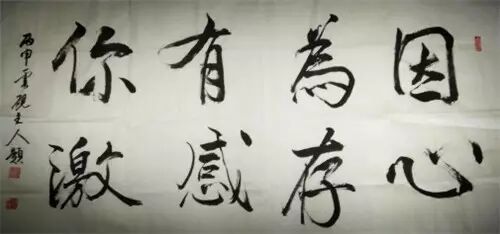 因為有你
心存感激
丙申雲硯主人題